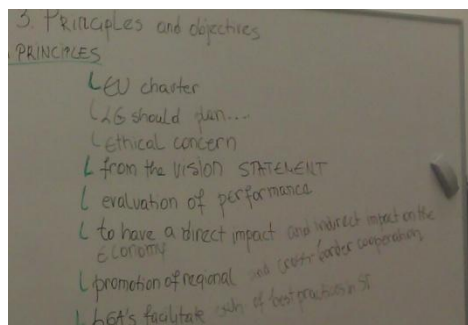 3. PRINCIPLES and objectives
PRINCIPLES
EU charter
LG should plan....
Ethical concern
from the VISION STATEMENT
evaluation of performance
to have a direct impact and indirect impact on the
ECONOMY
promotion of regional and cross border cooperation
facilitate of best practices in